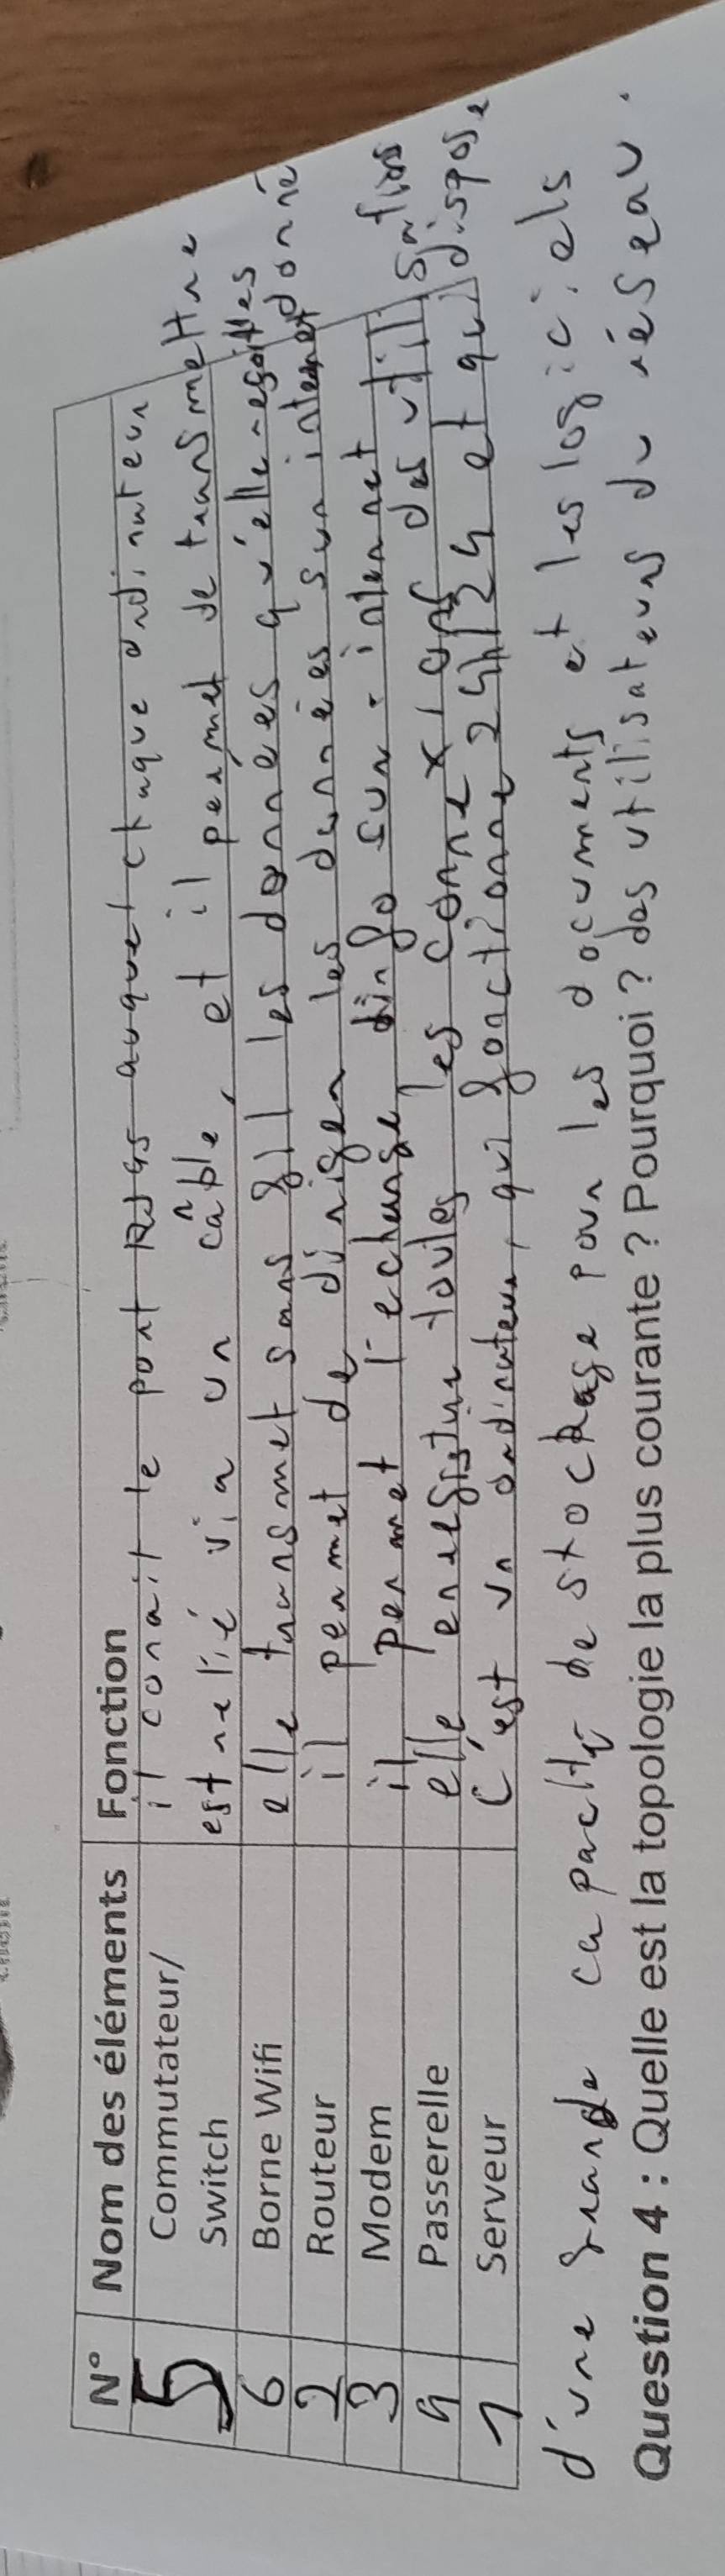 N° Nom des éléments Fonction
5 Commutateur/ il conait le port RJ45 auquel chaque ordinateur
Switch est relié via un câble, et il permet de transmettre
6 Borne Wifi elle transmet sans fil les données qu'elle reçoit
2 Routeur il permet de diriger les données sur internet
3 Modem il permet l'echange dinfo sur internet
4 Passerelle elle enregistre toutes les connexions des utilisations
1 Serveur C'est un ordinateur, qui fonctionne 24h/24 et qui dispose
d'une grande capacité de stockage pour les documents et les logiciels
Question 4 : Quelle est la topologie la plus courante ? Pourquoi ? des utilisateurs du réseau.